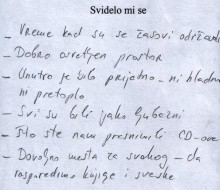 Svidelo mi se
- Vreme kad su se časovi održavali
- Dobro osvetljen prostor
- Unutra je bilo prijatno - ni hladno
ni pretoplo
- Svi su bili jako ljubazni
- Što ste nam presnimili CD-ove
- Dovoljno mesta za svakog - da
rasporedimo knjige i sveske